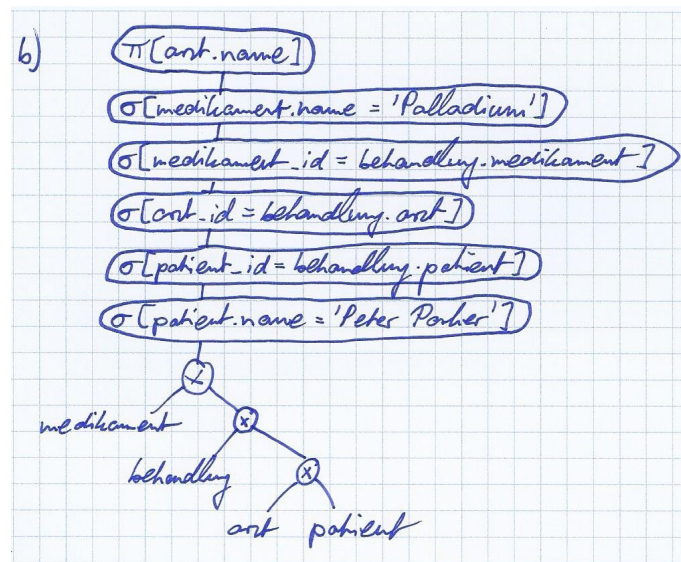 b)
π[arzt.name]
σ[medikament.name = 'Palladium']
σ[medikament_id = behandlung.medikament]
σ[arzt_id = behandlung.arzt]
σ[patient_id = behandlung.patient]
σ[patient.name = 'Peter Parker']
×
medikament ×
behandlung ×
arzt patient